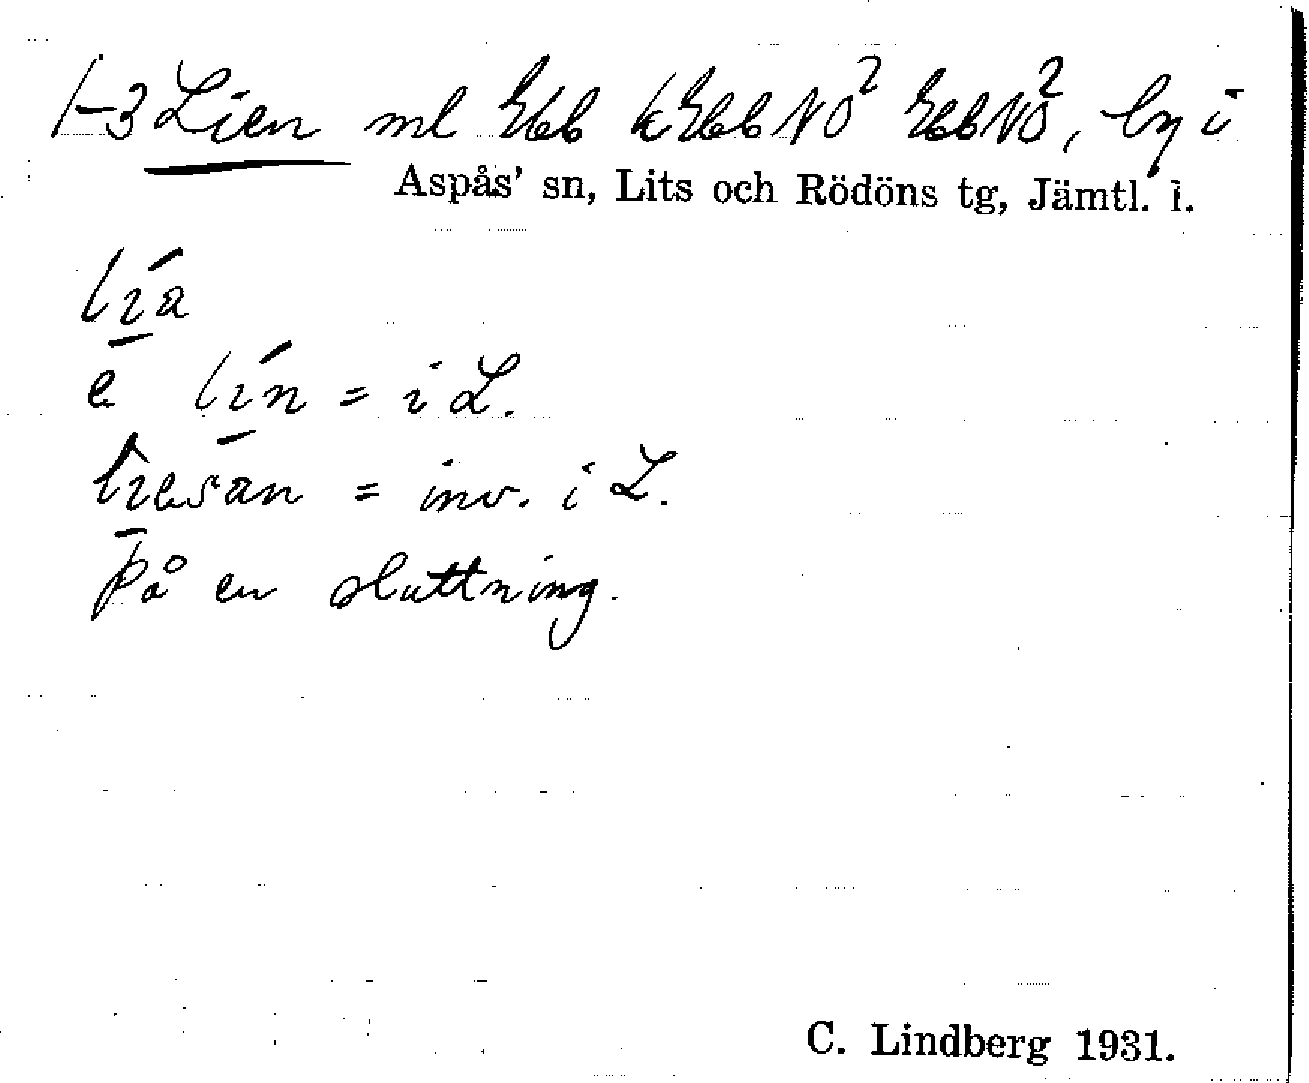 1-3 Lien ml Ebb kEbbNO² EbbNO², by i
Aspås' sn, Lits och Rödöns tg, Jämtl. l.
lı̄́a
e lı̄́n = i L.
lı̄̂esan = inv. i L.
På en sluttning.
C. Lindberg 1931.